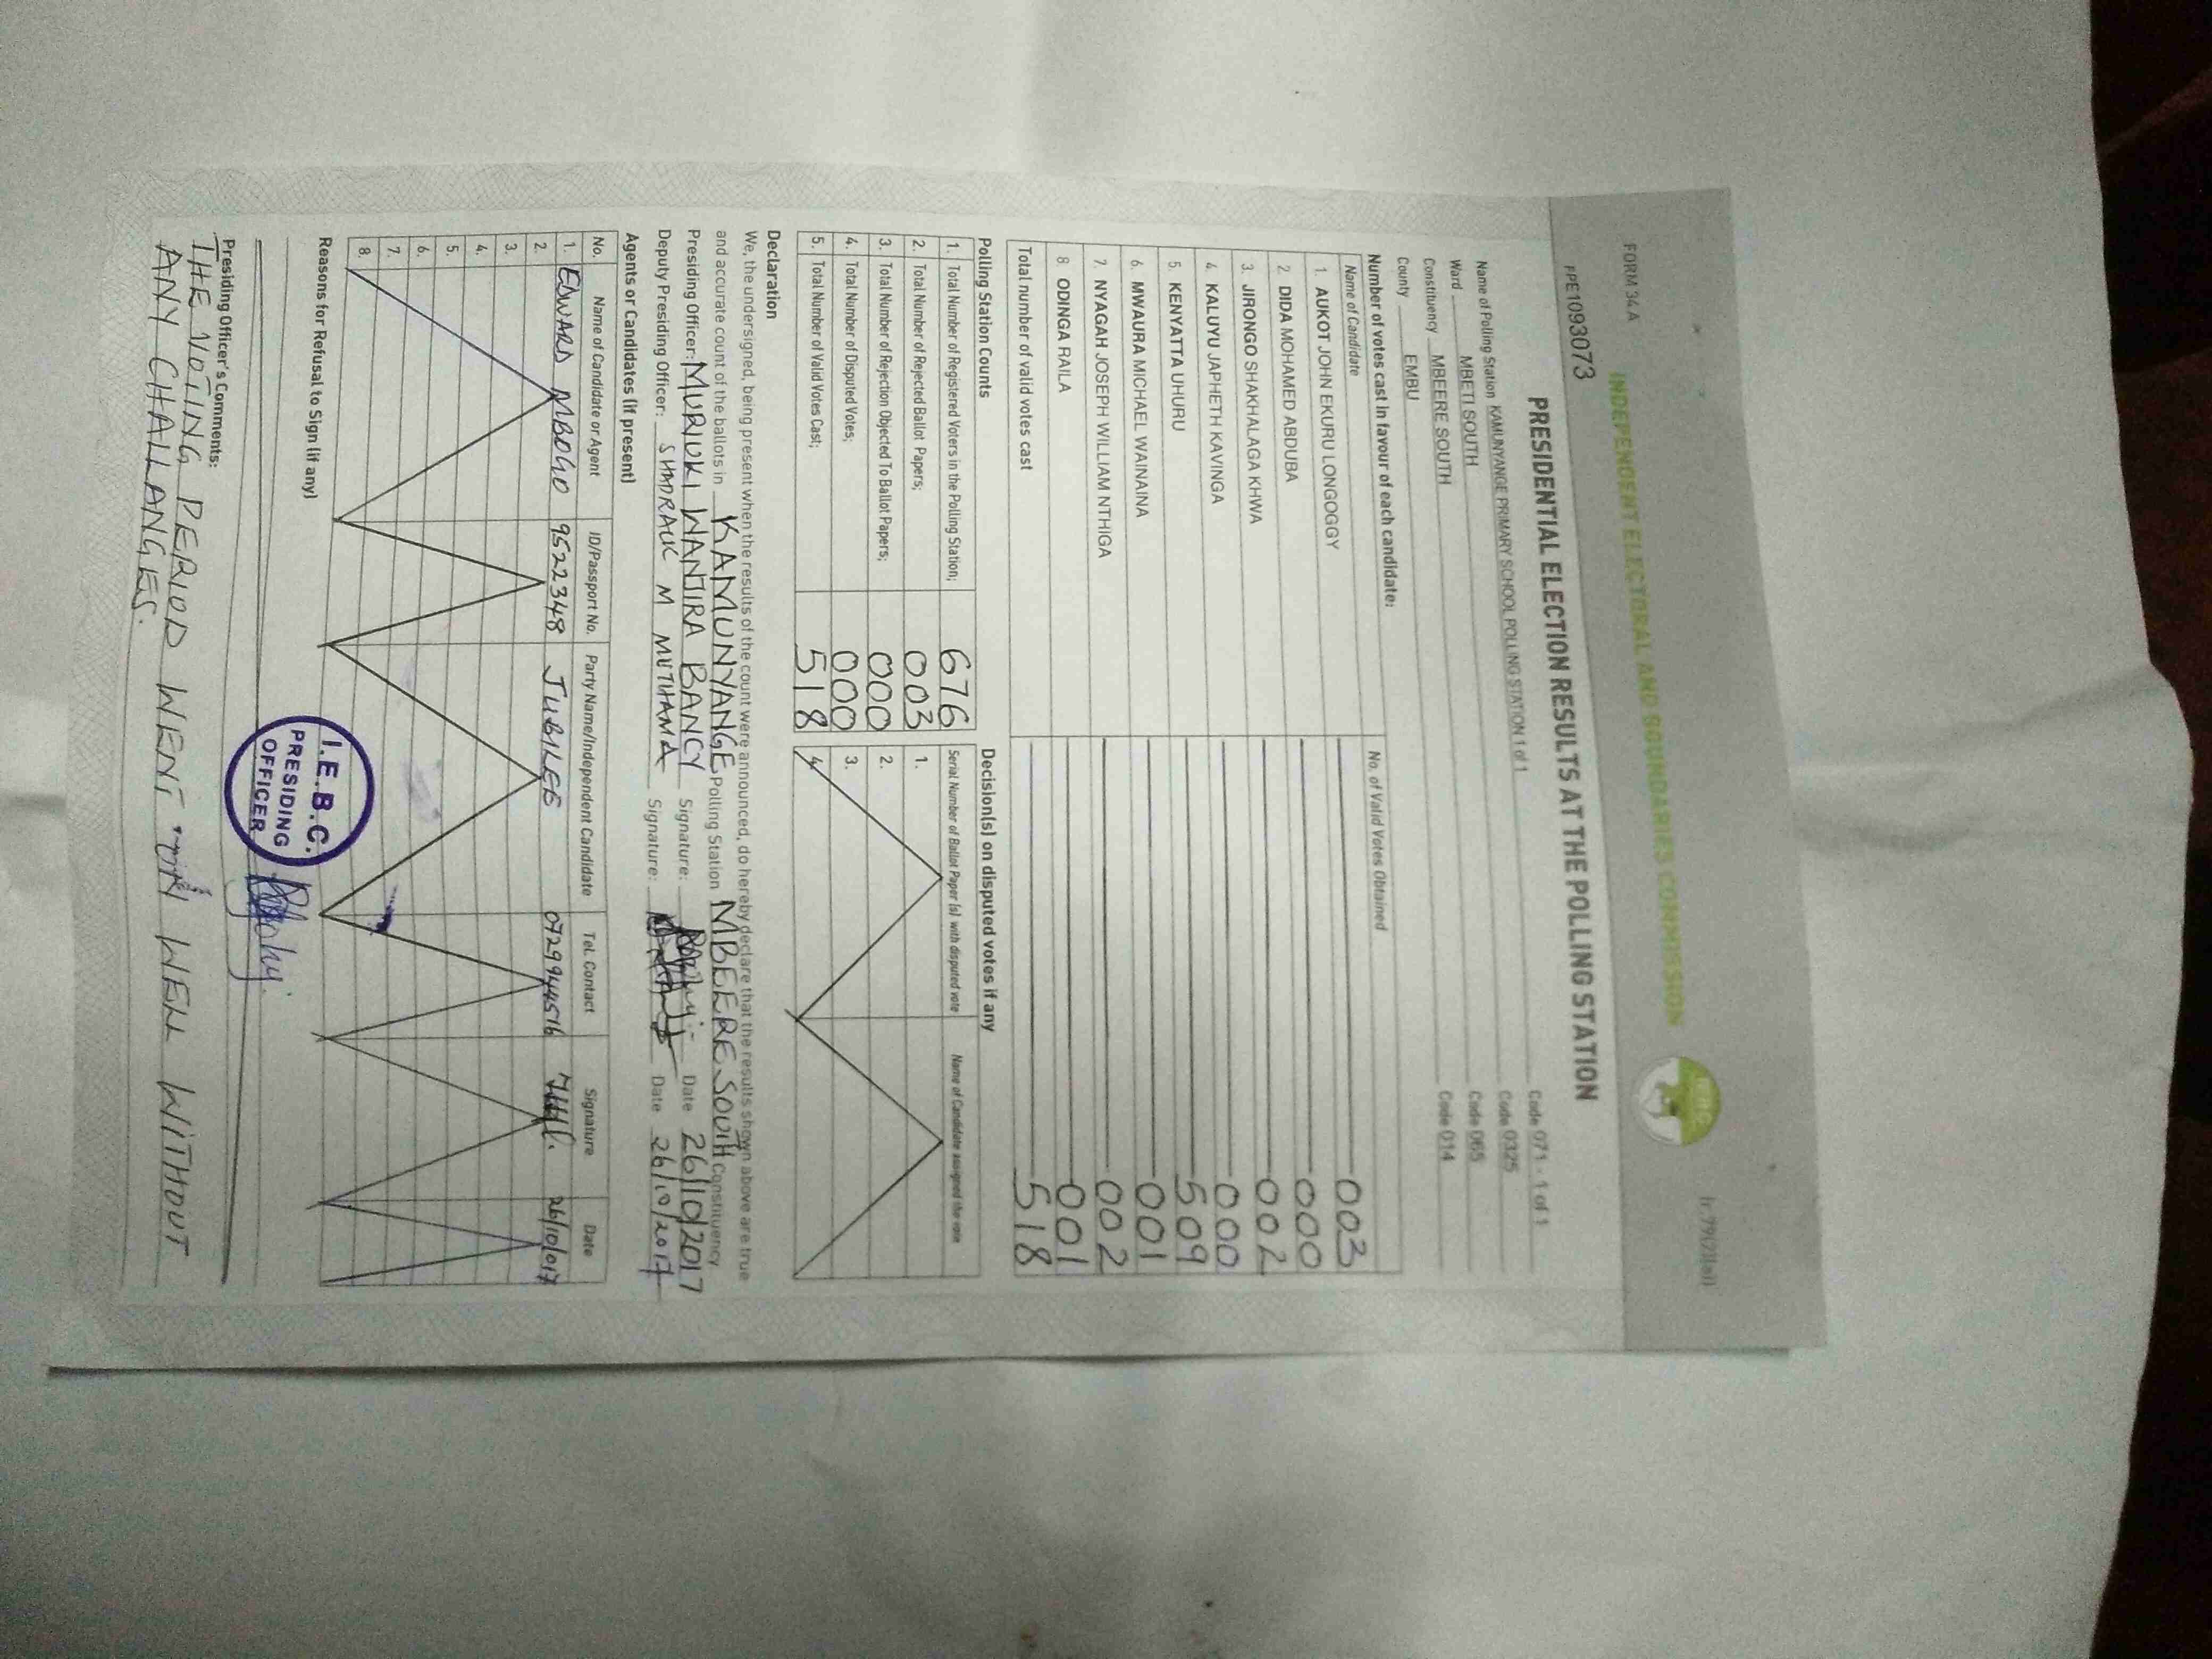 FORM 34A
(r.79(2)(a))
INDEPENDENT ELECTORAL AND BOUNDARIES COMMISSION
FPE1093073
PRESIDENTIAL ELECTION RESULTS AT THE POLLING STATION
Name of Polling Station KAMUNYANGE PRIMARY SCHOOL POLLING STATION 1 of 1 Code 071 - 1 of 1
Ward MBETI SOUTH Code 0325
Constituency MBEERE SOUTH Code 065
County EMBU Code 014
Number of votes cast in favour of each candidate:
Name of Candidate No. of Valid Votes Obtained
1. AUKOT JOHN EKURU LONGOGGY 003
2. DIDA MOHAMED ABDUBA 000
3. JIRONGO SHAKHALAGA KHWA 002
4. KALUYU JAPHETH KAVINGA 000
5. KENYATTA UHURU 509
6. MWAURA MICHAEL WAINAINA 001
7. NYAGAH JOSEPH WILLIAM NTHIGA 002
8 ODINGA RAILA 001
Total number of valid votes cast 518
Polling Station Counts
1. Total Number of Registered Voters in the Polling Station; 676
2. Total Number of Rejected Ballot Papers; 003
3. Total Number of Rejection Objected To Ballot Papers; 000
4. Total Number of Disputed Votes; 000
5. Total Number of Valid Votes Cast; 518
Decision(s) on disputed votes if any
Serial Number of Ballot Paper (s) with disputed vote Name of Candidate assigned the vote
1.
2.
3.
4.
Declaration
We, the undersigned, being present when the results of the count were announced, do hereby declare that the results shown above are true
and accurate count of the ballots in KAMUNYANGE Polling Station MBEERE SOUTH Constituency
Presiding Officer: MURIUKI WANJIRA BANCY Signature: Date 26/10/2017
Deputy Presiding Officer: SHADRACK M MUTHAMA Signature: Date 26/10/2017
Agents or Candidates (if present)
No. Name of Candidate or Agent ID/Passport No. Party Name/Independent Candidate Tel. Contact Signature Date
1. EDWARD MBOGO 9522348 JUBILEE 0729944516 26/10/017
2.
3.
4.
5.
6.
7.
8.
Reasons for Refusal to Sign (if any)
I.E.B.C.
PRESIDING
OFFICER
Presiding Officer's Comments:
THE VOTING PERIOD WENT ON WELL WITHOUT
ANY CHALLANGES.